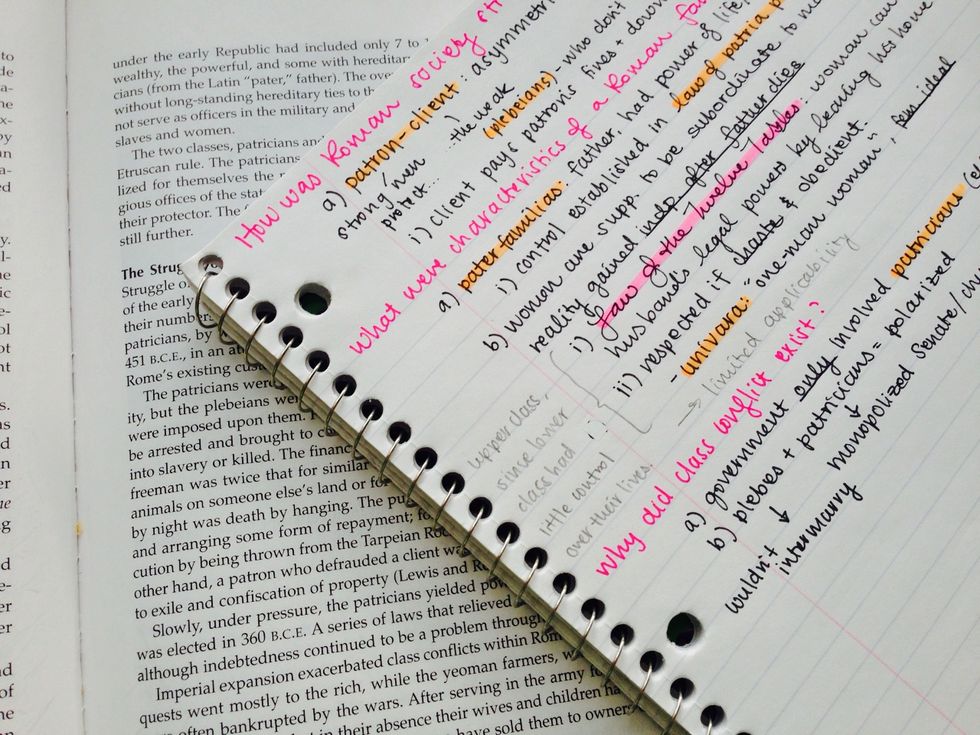 under the early Republic had included only 7 to
wealthy, the powerful, and some with hereditar
cians (from the Latin “pater,” father). The ove
without long-standing hereditary ties to th
not serve as officers in the military and
slaves and women.
The two classes, patricians an
Etruscan rule. The patricians
lized for themselves the r
gious offices of the stat
their protector. The
still further.
The Strug
Struggle o
of the early
their number
patricians, by
451 B.C.E., in an at
Rome’s existing cus
The patricians were
ity, but the plebeians wer
were imposed upon them.
be arrested and brought to c
into slavery or killed. The financ
freeman was twice that for similar
animals on someone else’s land or fo
by night was death by hanging. The pu
and arranging some form of repayment; fo
cution by being thrown from the Tarpeian Roc
other hand, a patron who defrauded a client wa
to exile and confiscation of property (Lewis and R
Slowly, under pressure, the patricians yielded pow
was elected in 360 B.C.E. A series of laws that relieved
although indebtedness continued to be a problem through
Imperial expansion exacerbated class conflicts within Rom
quests went mostly to the rich, while the yeoman farmers, w
often bankrupted by the wars. After serving in the army fo
in their absence their wives and children ha
have sold them to owners
How was Roman society str
a) patron-client: asymmetri
strong men ...the weak
protect... (plebeians) - who don't
i) client pays patron's fines + down
What were characteristics of a Roman fa
a) paterfamilias: father, had power of life,
i) control established in law of patria p
b) women are supp. to be subordinate to m
reality gained indep after father dies
i) Law of the Twelve Tables: woman can
husband's legal powers by leaving his home
ii) respected if chaste & obedient.
- univara: "one-man woman", ideal
→ limited applicability
upper class,
since lower
class had
little control
over their lives.
Why did class conflict exist?
a) government only involved patricians (e
b) plebes + patricians = polarized
↓ ↓
wouldn't monopolized Senate/
intermarry